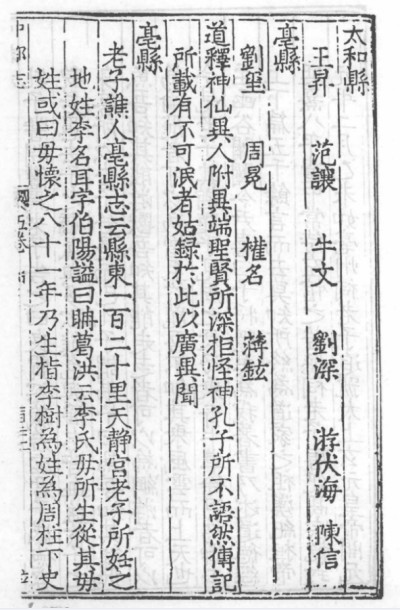 太和縣
王昇 范讓 牛文 劉深 游伏海 陳信
亳縣
劉璽 周冕 權名 薛鉉
道釋神仙異人附異端聖賢所深拒怪神孔子所不語然傳記
所載有不可泯者姑録於此以廣異聞
亳縣
老子譙人亳縣志云縣東一百二十里天静宫老子所姙之
地姓李名耳字伯陽謚曰聃葛洪云李氏毋所生從其毋
姓或曰毋懷之八十一年乃生指李樹為姓為周柱下史
中都志